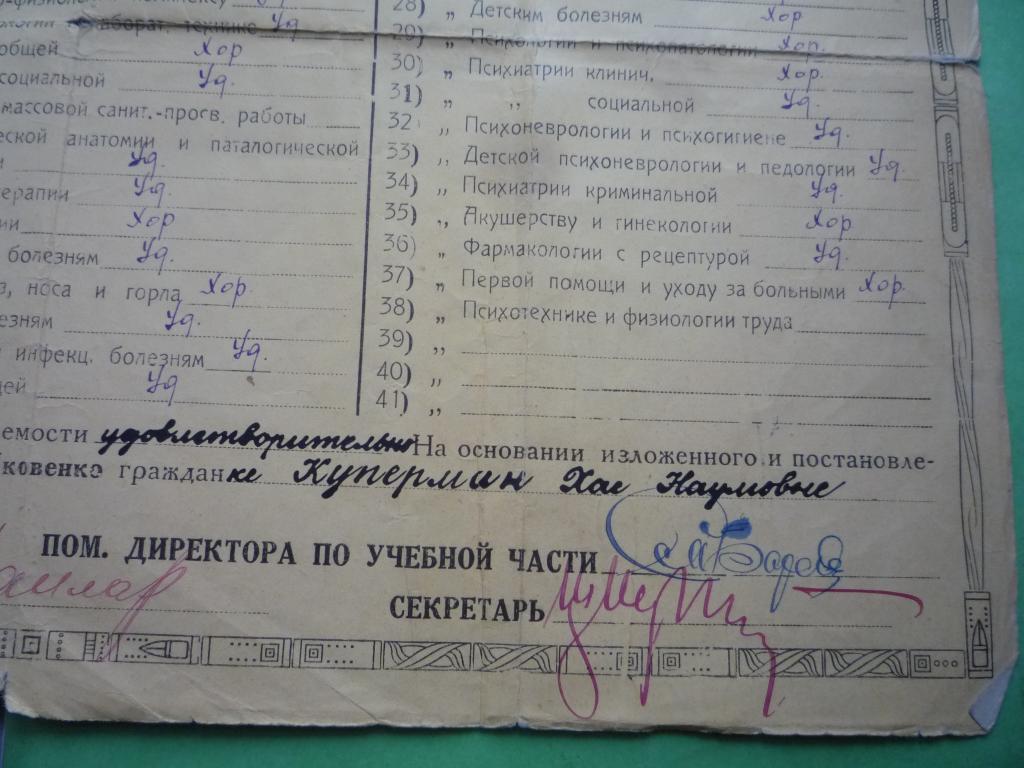 28) „ Детским болезням Хор
лаборат. технике Уд
29) „ Психологии и психопатологии Хор.
общей Хор
30) „ Психиатрии клинич. Хор.
социальной Уд.
31) „ „ социальной Уд.
массовой санит.-просв. работы
32 „ Психоневрологии и психогигиене Уд.
еской анатомии и паталогической
33) „ Детской психоневрологии и педологии Уд.
и Уд.
ерапии Уд.
34) „ Психиатрии криминальной Уд.
ии Хор
35) „ Акушерству и гинекологии Хор
болезням Уд.
36) „ Фармакологии с рецептурой Уд.
з, носа и горла Хор.
37) „ Первой помощи и уходу за больными Хор.
езням Уд.
38) „ Психотехнике и физиологии труда
39) „
и инфекц. болезням Уд.
40) „
щей Уд
41) „
емости удовлетворительно На основании изложенного и постановле-
ковенко гражданке Куперман Хае Наумовне
ПОМ. ДИРЕКТОРА ПО УЧЕБНОЙ ЧАСТИ
СЕКРЕТАРЬ